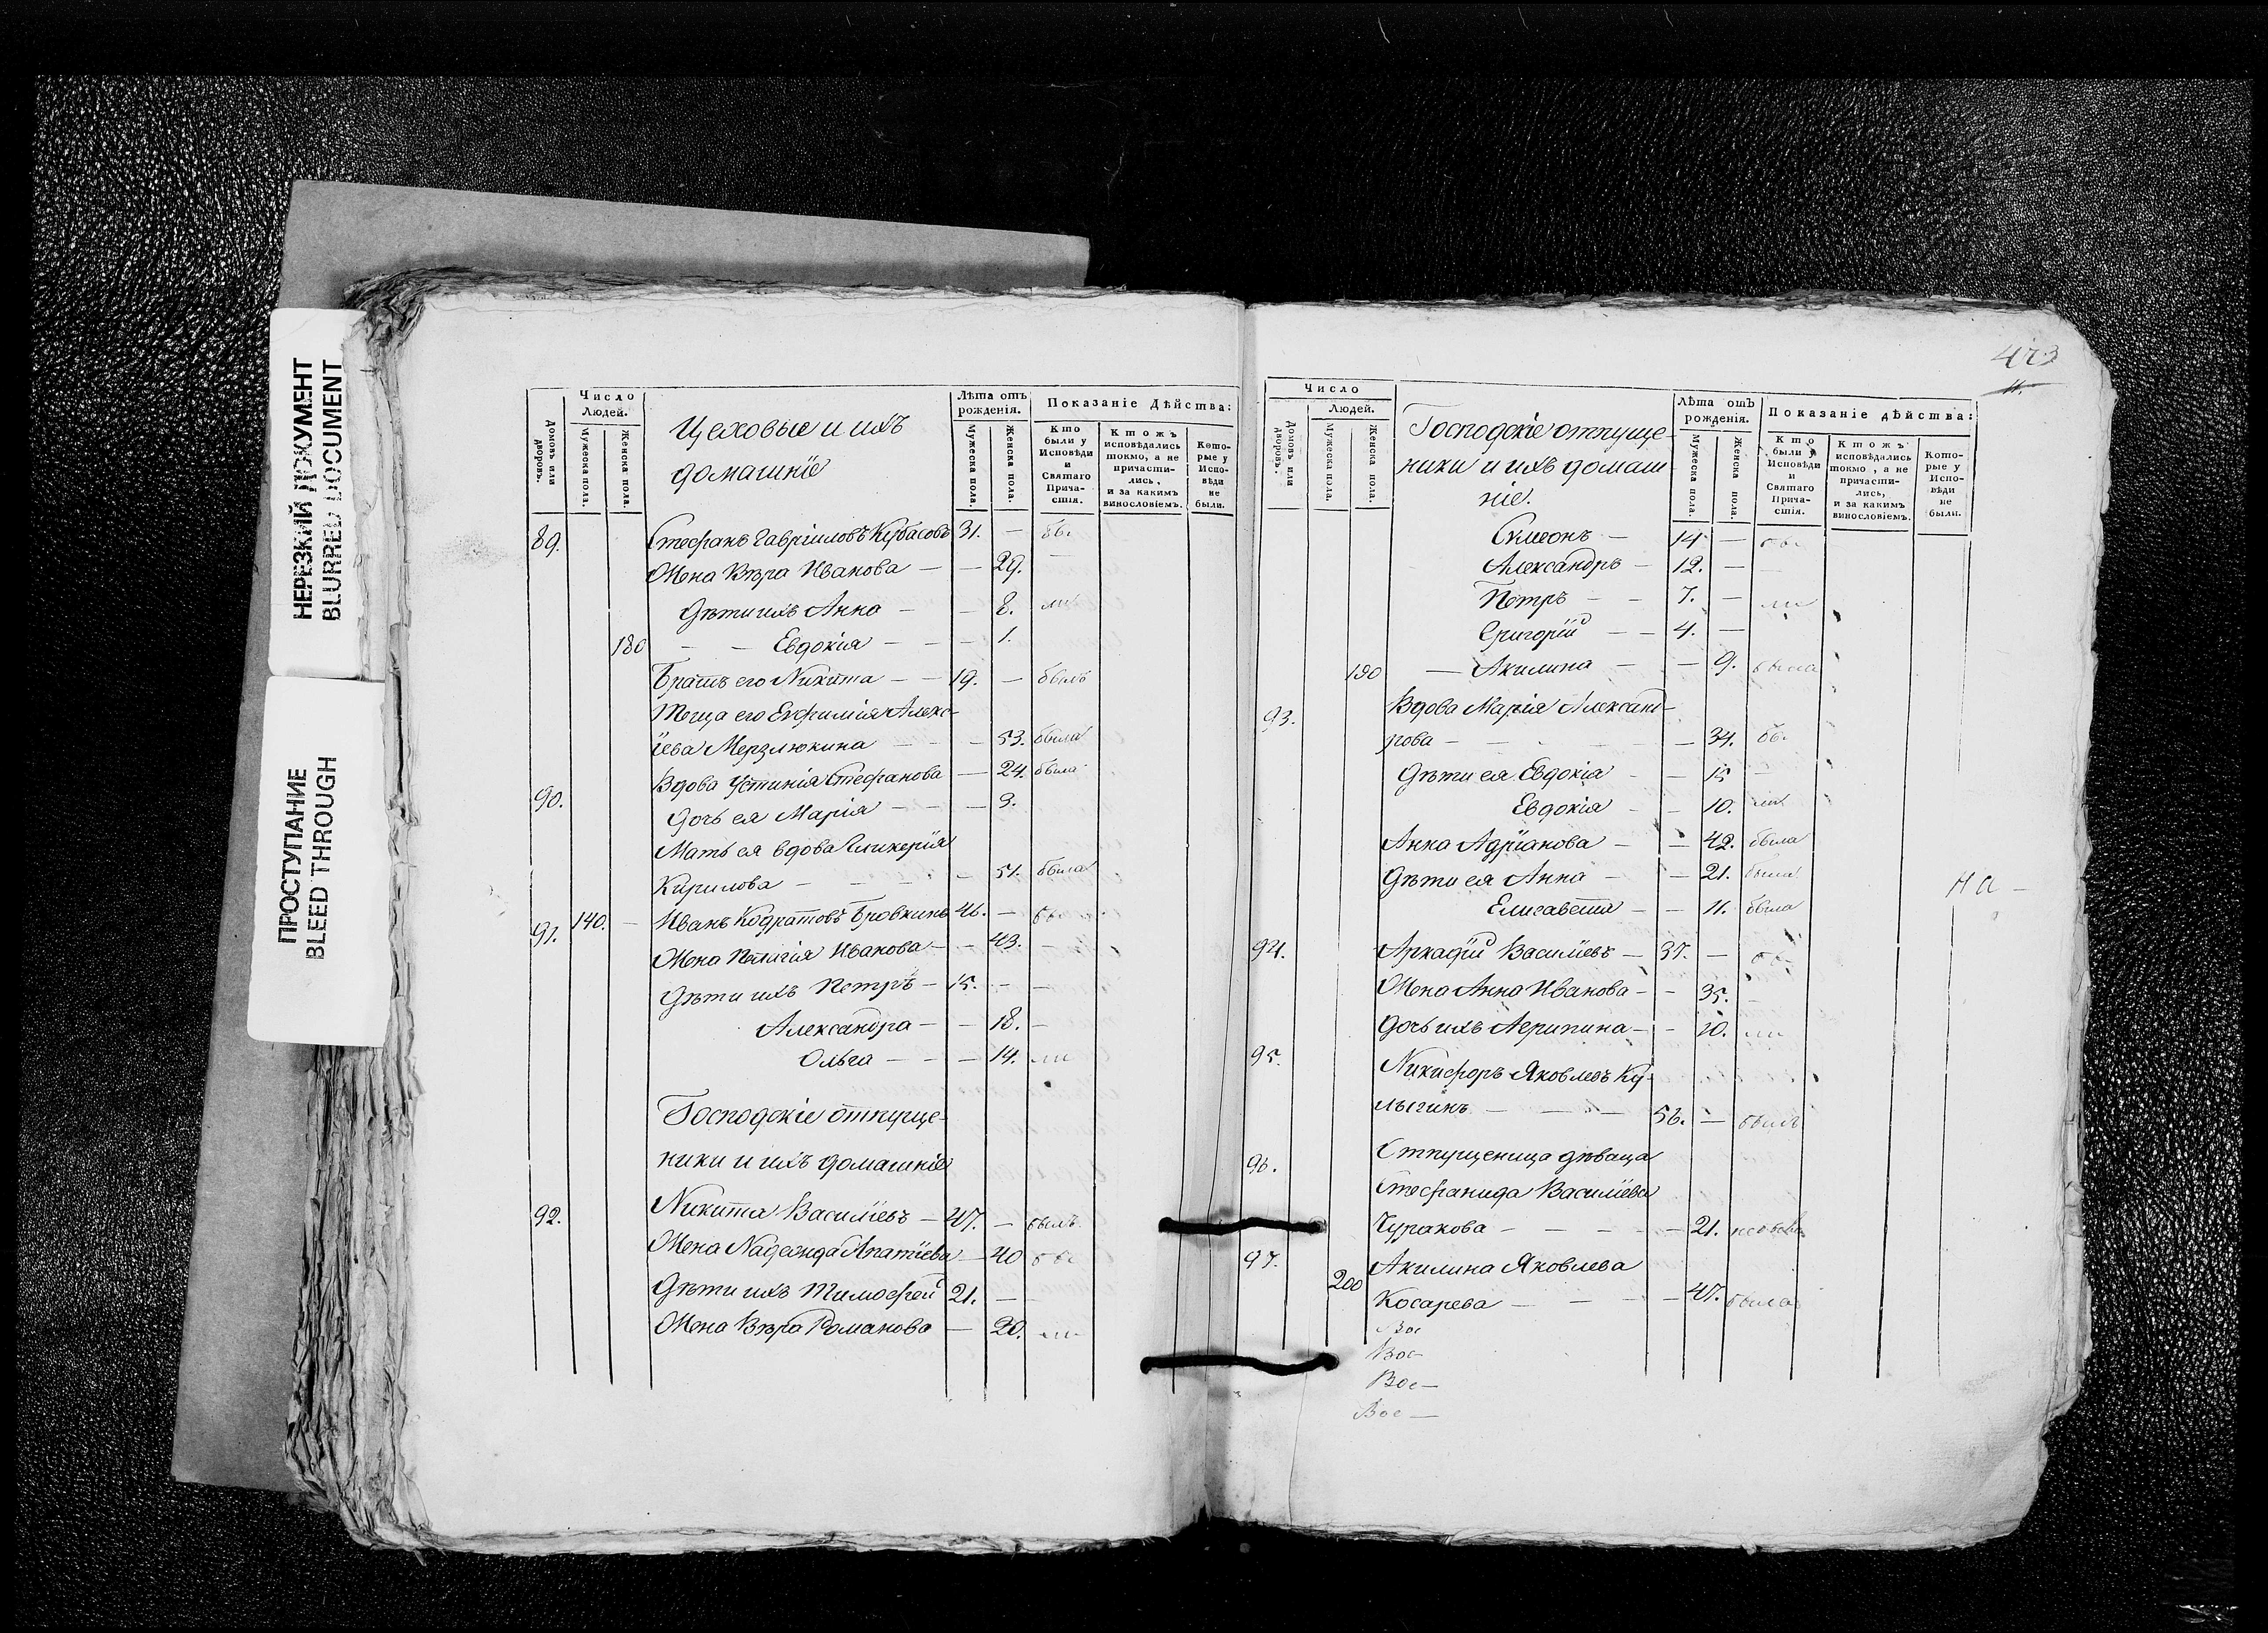 НЕРЕЗКИЙ ДОКУМЕНТ
BLURRED DOCUMENT
ПРОСТУПАНИЕ
BLEED THROUGH
Число
Людей.
Домовъ или дворовъ.
Мужеска пола.
Женска пола.
Цеховые и ихъ
домашніе
Лѣта отъ рожденія.
Мужеска пола.
Женска пола.
Показаніе Дѣйства:
Кто были у Исповѣди и Святаго Прича-стія.
Ктожъ исповѣдались токмо, а не причасти-лись, и за какимъ винословіемъ.
Кото-рые у Испо-вѣди не были.
89. Стефанъ Гавріиловъ Кубасовъ 31. — бы
Жена Вѣра Иванова — — 29. —
Дѣти ихъ Анна — — 8. ли
180 — — Евдокія — — 1.
Братъ его Никита — — 19. — былъ
Теща его Евфимія Алекс-
ѣева Мерзлюкина — — 53. была
90. Вдова Устинія Стефанова — 24. была
Дочь ея Марія — — — 3.
Мать ея вдова Гликерія
Кирилова — — — 51. была
91. 140. — Иванъ Кодратовъ Бровкинъ 46. — бы
Жена Пелагія Иванова — — 43. —
Дѣти ихъ Петръ — 15. — —
Александра — — 18. —
Ольга — — — 14. ли
Господскіе отпуще-
ники и ихъ домашніе
92. Никита Василіевъ — 47. — былъ
Жена Надежда Ипатіева — 40 бы
Дѣти ихъ Тимофей 21. — —
Жена Вѣра Романова — 20. ли
473
11.
Число
Людей.
Домовъ или дворовъ.
Мужеска пола.
Женска пола.
Господскіе отпуще-
ники и ихъ домаш
ніе.
Лѣта отъ рожденія.
Мужеска пола.
Женска пола.
Показаніе дѣйства:
Кто были у Исповѣди и Святаго Прича-стія.
Ктожъ исповѣдались токмо, а не причасти-лись, и за какимъ винословіемъ.
Кото-рые у Испо-вѣди не были.
Сѵмеонъ — 14 — бы
Александръ — 12. — —
Петръ — — 7. — ли
Григорій — — 4. —
190 — Акилина — — 9. была
93. Вдова Марія Александ-
рова — — — 34. бы
Дѣти ея Евдокіа — — 15 —
Евдокія — — 10. ли
Анна Адріанова — — 42. была
Дѣти ея Анна — — 21. была
Елисавета — — 11. была
На —
94. Аркадій Василіевъ — 37. — бы
Жена Анна Иванова — — 35. —
Дочь ихъ Агрипина — — 10. ли
95. Никифоръ Яковлевъ Ку-
лыгинъ — — — 56. — былъ
96. Отпущеница дѣвица
Стефанида Василіева
Чуракова — — — — 21. не была
97. Акилина Яковлева
200 Косарева — — — 47. была
Вос
Вос
Вос —
Вос —